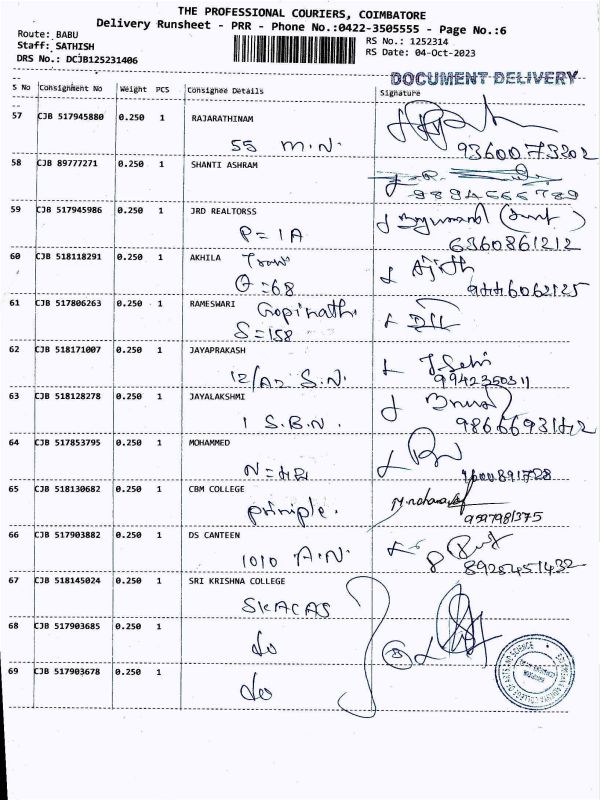 THE PROFESSIONAL COURIERS, COIMBATORE
Delivery Runsheet - PRR - Phone No.:0422-3505555 - Page No.:6
Route: BABU
Staff: SATHISH
DRS No.: DCJB125231406
RS No.: 1252314
RS Date: 04-Oct-2023
DOCUMENT DELIVERY
S No Consignment No Weight PCS Consignee Details Signature
57 CJB 517945880 0.250 1 RAJARATHINAM
55 M.N.
9360073302
58 CJB 89777271 0.250 1 SHANTI ASHRAM
9894566789
59 CJB 517945986 0.250 1 JRD REALTORSS
P=1A
6360861212
60 CJB 518118291 0.250 1 AKHILA
=68
Ajith
9446062125
61 CJB 517806263 0.250 1 RAMESWARI
Gopinath
S=158
62 CJB 518171007 0.250 1 JAYAPRAKASH
12/A2 S.N.
9942350311
63 CJB 518128278 0.250 1 JAYALAKSHMI
1 S.B.N.
64 CJB 517853795 0.250 1 MOHAMMED
9600891728
65 CJB 518130682 0.250 1 CBM COLLEGE
priniple.
9597981375
66 CJB 517903882 0.250 1 DS CANTEEN
1010 A.N.
8925451432
67 CJB 518145024 0.250 1 SRI KRISHNA COLLEGE
SKACAS
68 CJB 517903685 0.250 1
do
69 CJB 517903678 0.250 1
do